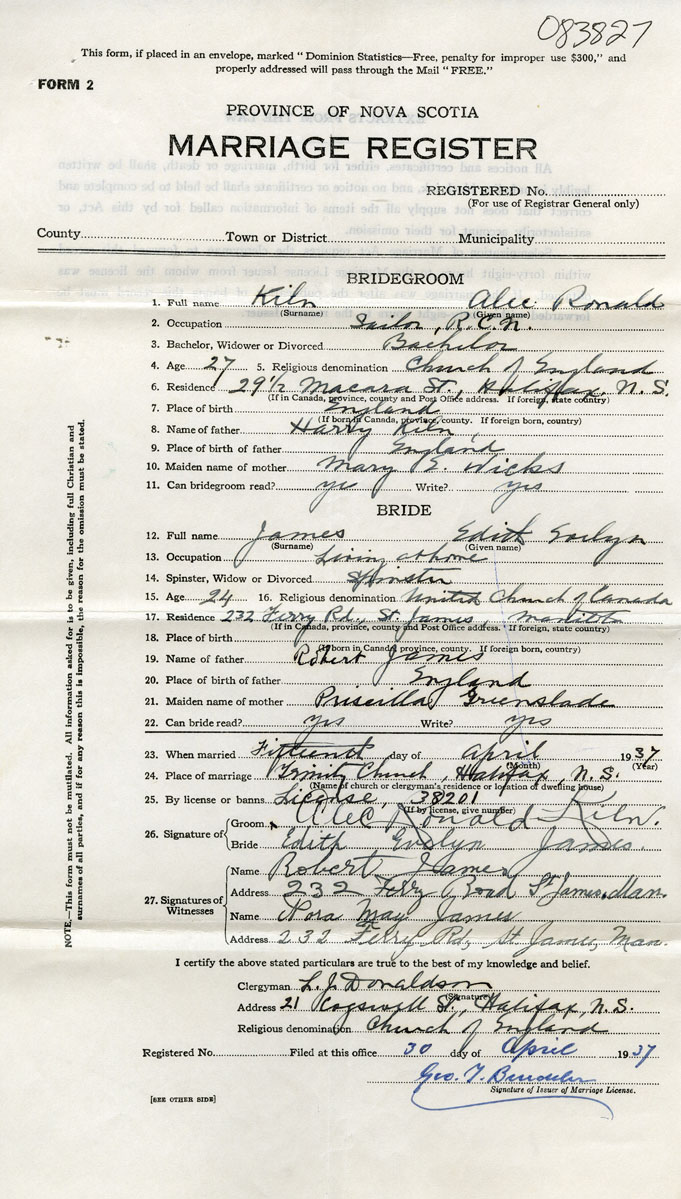 083827
This form, if placed in an envelope, marked "Dominion Statistics—Free, penalty for improper use $300," and
properly addressed will pass through the Mail "FREE."
FORM 2
PROVINCE OF NOVA SCOTIA
MARRIAGE REGISTER
REGISTERED No.
(For use of Registrar General only)
County Town or District Municipality
BRIDEGROOM
1. Full name Kiln Alec Ronald
(Surname) (Given name)
2. Occupation Sailor, R.C.N.
3. Bachelor, Widower or Divorced Bachelor
4. Age 27 5. Religious denomination Church of England
6. Residence 29½ Macara St., Halifax, N.S.
(If in Canada, province, county and Post Office address. If foreign, state country)
7. Place of birth England
(If born in Canada, province, county. If foreign born, country)
8. Name of father Harry Kiln
9. Place of birth of father England
10. Maiden name of mother Mary E. Wicks
11. Can bridegroom read? yes Write? yes
BRIDE
12. Full name James Edith Evelyn
(Surname) (Given name)
13. Occupation Living at home
14. Spinster, Widow or Divorced Spinster
15. Age 24 16. Religious denomination United Church of Canada
17. Residence 232 Ferry Rd., St. James, Manitoba
(If in Canada, province, county and Post Office address. If foreign, state country)
18. Place of birth
(If born in Canada, province, county. If foreign born, country)
19. Name of father Robert James
20. Place of birth of father England
21. Maiden name of mother Priscilla Greenslade
22. Can bride read? yes Write? yes
23. When married Fifteenth day of April 1937
(Month) (Year)
24. Place of marriage Trinity Church, Halifax, N.S.
(Name of church or clergyman's residence or location of dwelling house)
25. By license or banns License, 38201
(If by license, give number)
26. Signature of
Groom Alec Ronald Kiln.
Bride Edith Evelyn James.
27. Signatures of Witnesses
Name Robert James
Address 232 Ferry Road St James, Man.
Name Nora May James
Address 232 Ferry Rd, St James, Man.
I certify the above stated particulars are true to the best of my knowledge and belief.
Clergyman L. J. Donaldson
(Signature)
Address 21 Cogswell St., Halifax, N.S.
Religious denomination Church of England
Registered No. Filed at this office 30 day of April 1937
Geo. T.
Signature of Issuer of Marriage License.
[SEE OTHER SIDE]
NOTE.—This form must not be mutilated. All information asked for is to be given, including full Christian and
surnames of all parties, and if for any reason this is impossible, the reason for the omission must be stated.